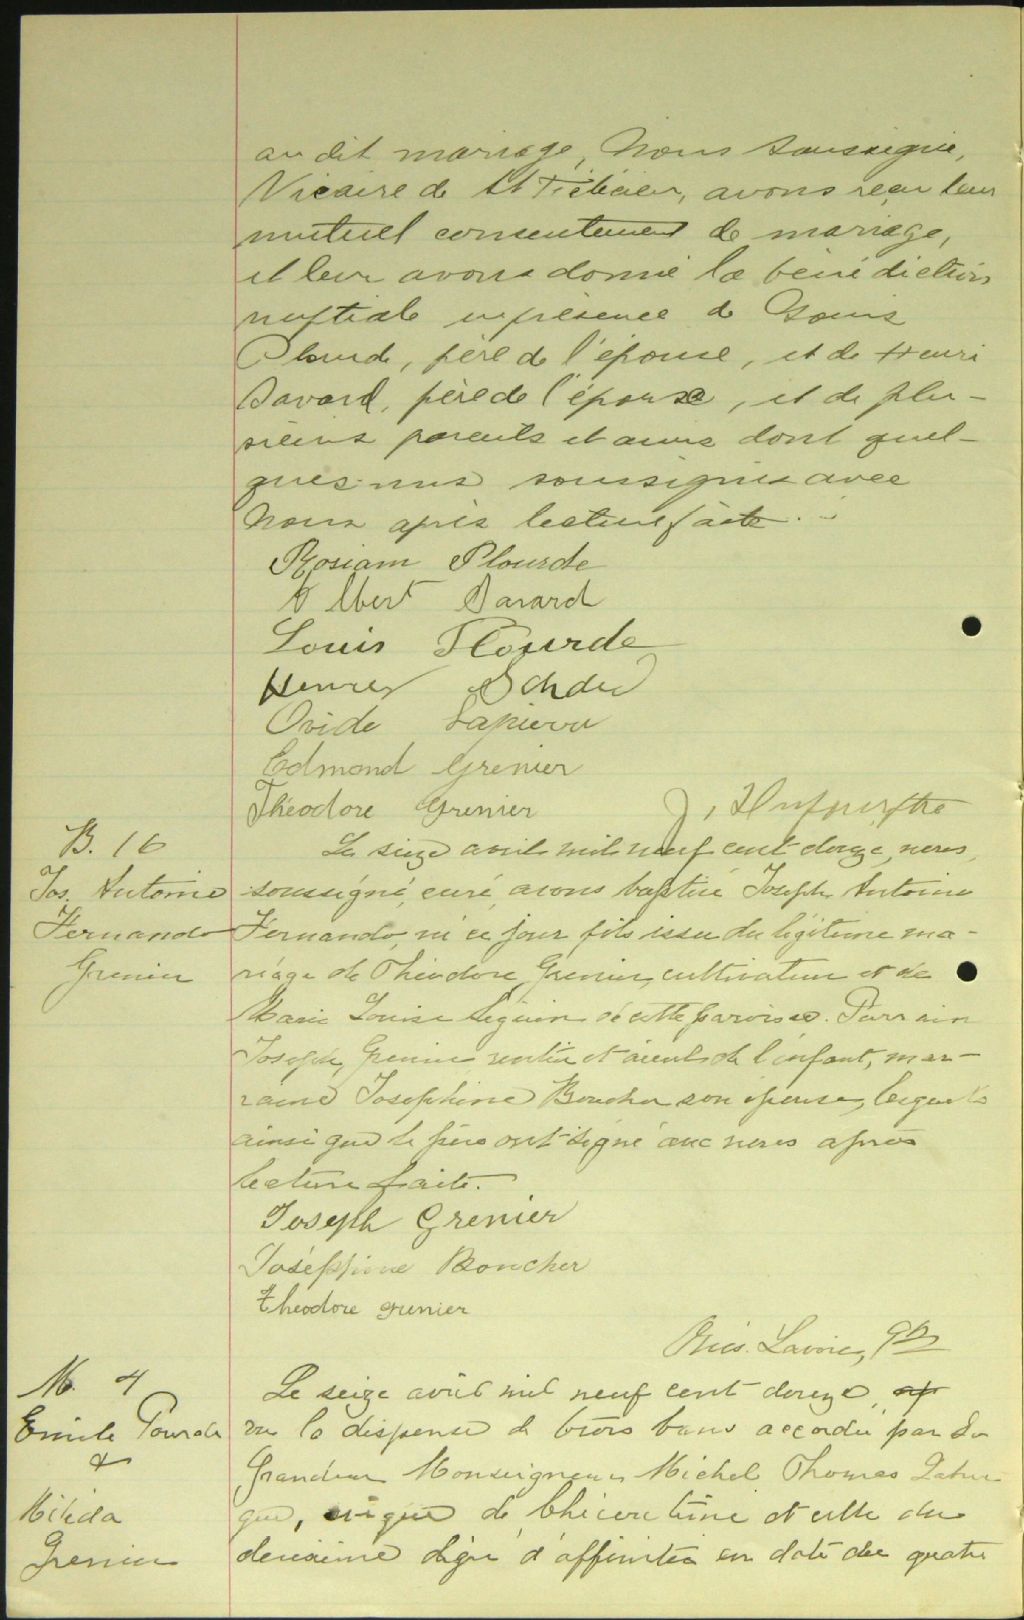 au dit mariage, Nous soussigné,
Vicaire de St Félicien, avons reçu leur
mutuel consentement de mariage,
et leur avons donné la bénédiction
nuptiale en présence de Louis
Plourde, père de l'épouse, et de Henri
Savard, père de l'épouse, et de plu-
sieurs parents et amis dont quel-
ques-uns soussignés avec
Nous après lecture faite.
Rosiam Plourde
Albert Savard
Louis Plourde
Henrey
Ovide Lapierre
Edmond Grenier
Théodore Grenier
B. 16
Jos. Antoine
Fernando
Grenier
Le seize avril mil neuf cent douze, nous
soussigné, curé, avons baptisé Joseph Antoine
Fernando, né ce jour fils issu du légitime ma-
riage de Théodore Grenier, cultivateur et de
Marie Louise Seguin de cette paroisse. Parrain
Joseph Grenier rentier et aïeul de l'enfant, mar-
raine Josephine Boucher son épouse, lesquels
ainsi que le père ont signé avec nous après
lecture faite.
Joseph Grenier
Joséphine Boucher
Theodore grenier
Lavoie, Ptre
M. 4
Emile Plourde
&
Délida
Grenier
Le seize avril mil neuf cent douze,
vu la dispense de trois bans accordée par Sa
Grandeur Monseigneur Michel Thomas Labrec
que, évêque de Chicoutimi et celle du
deuxième degré d'affinité en date du quatre